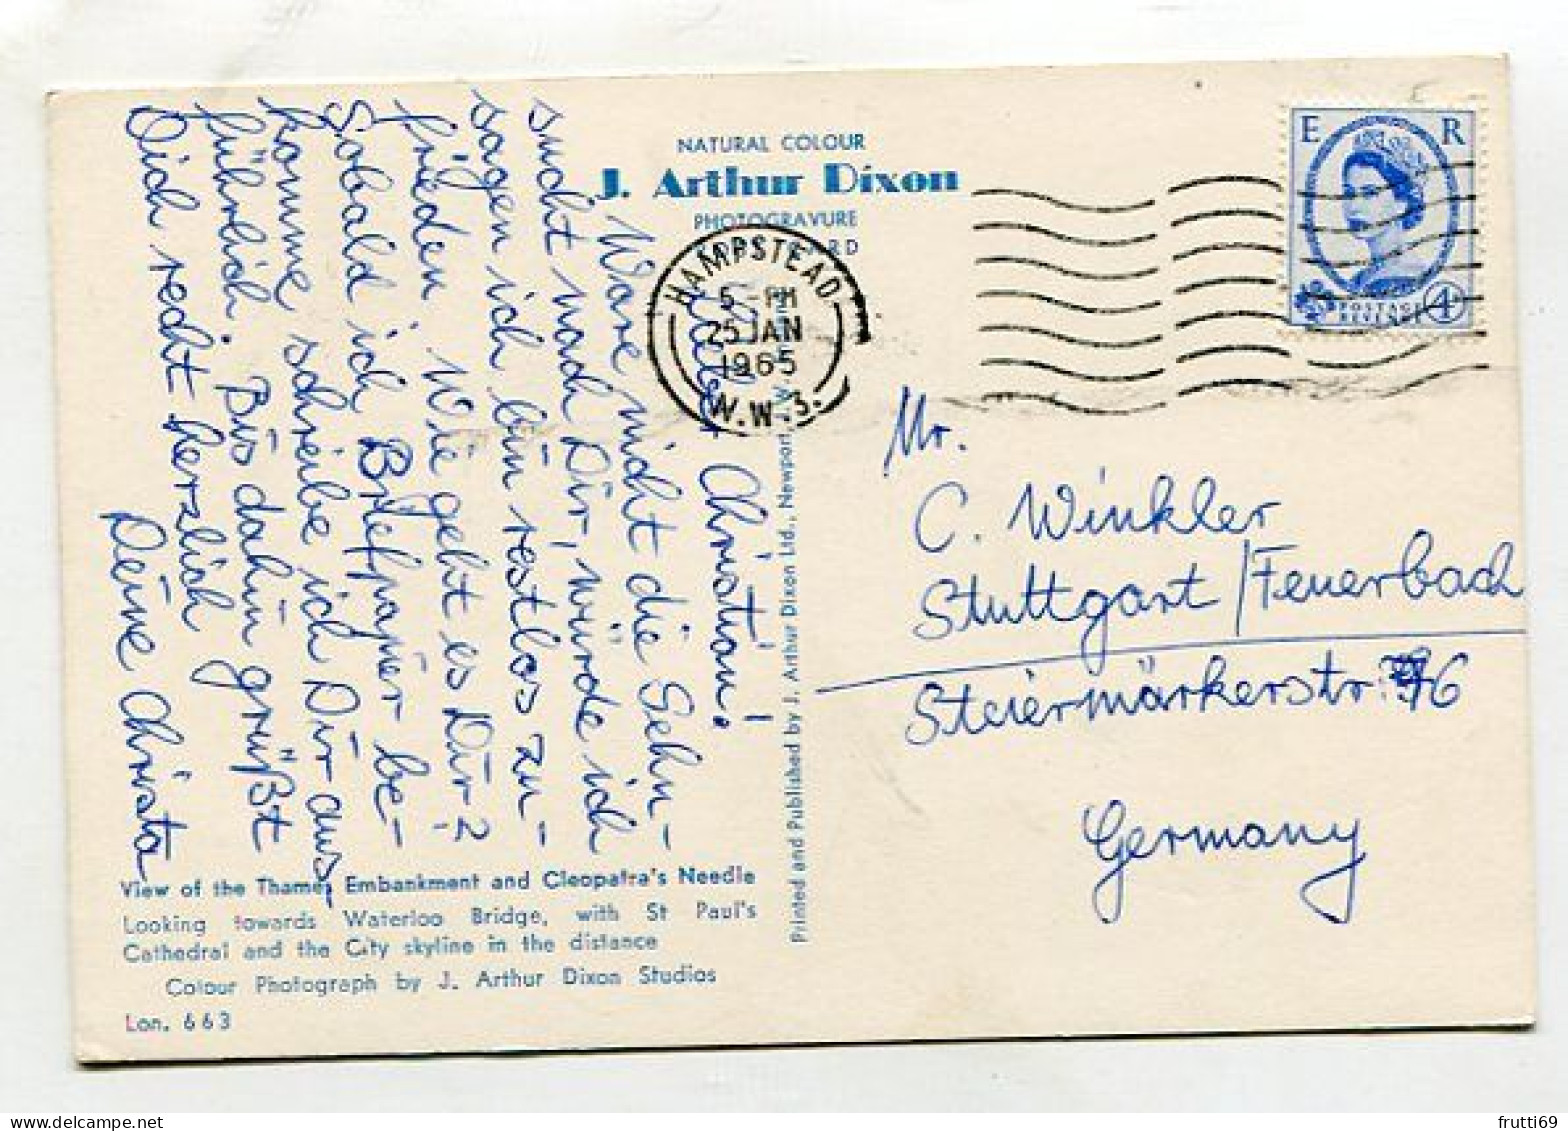 NATURAL COLOUR
J. Arthur Dixon
PHOTOGRAVURE
RD
HAMPSTEAD
5 - PM
25 JAN
1965
N.W.3.
E R
POSTAGE
REVENUE
4D
Lieber Christian!
Wäre nicht die Sehn-
sucht nach Dir, würde ich
sagen ich bin restlos zu-
frieden. Wie geht es Dir?
Sobald ich Briefpapier be-
komme schreibe ich Dir aus-
führlich. Bis dahin grüßt
Dich recht herzlich
Deine Christa
Mr.
C. Winkler
Stuttgart / Feuerbach
Steiermärkerstr. 76
Germany
Printed and Published by J. Arthur Dixon Ltd., Newport,
View of the Thames Embankment and Cleopatra's Needle
Looking towards Waterloo Bridge, with St Paul's
Cathedral and the City skyline in the distance
Colour Photograph by J. Arthur Dixon Studios
Lon. 663
frutti69